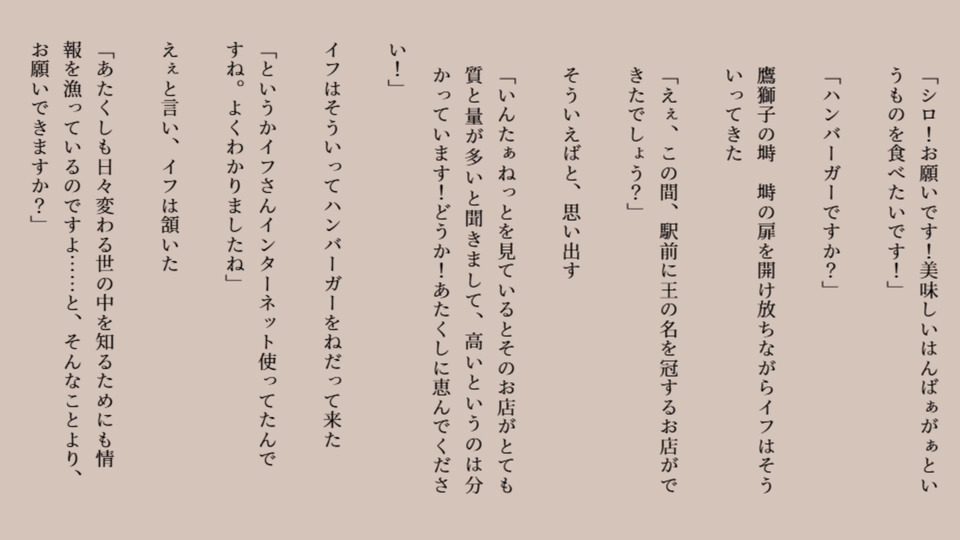 「シロ！お願いです！美味しいはんばぁがぁとい
うものを食べたいです！」
「ハンバーガーですか？」
鷹獅子の塒　塒の扉を開け放ちながらイフはそう
いってきた
「えぇ、この間、駅前に王の名を冠するお店がで
きたでしょう？」
そういえばと、思い出す
「いんたぁねっとを見ているとそのお店がとても
質と量が多いと聞きまして、高いというのは分
かっています！どうか！あたくしに恵んでくださ
い！」
イフはそういってハンバーガーをねだって来た
「というかイフさんインターネット使ってたんで
すね。よくわかりましたね」
えぇと言い、イフは頷いた
「あたくしも日々変わる世の中を知るためにも情
報を漁っているのですよ……と、そんなことより、
お願いできますか？」